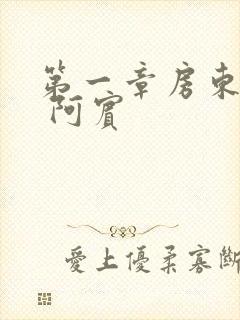 第一章房東
阿賓
愛上優柔寡斷